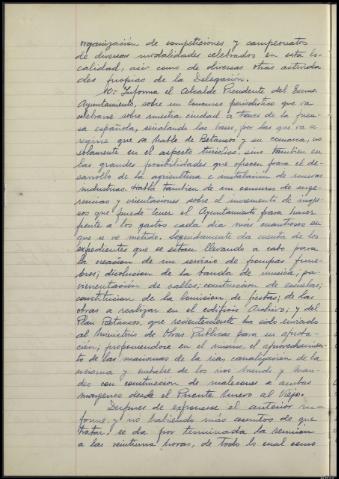 organización de competiciones y campeonatos
de diversas modalidades celebrados en esta lo-
calidad, así como de diversas otras activida
des propias de la Delegación.
10: Informa el Alcalde Presidente del Excmo
Ayuntamiento, sobre un concurso periodístico que va
celebrarse sobre nuestra ciudad a través de la pren-
sa española, señalando las bases, por las que va a
regirse que va hable de Betanzos y su comarca, no
solamente en el aspecto turístico, sino también en
las grandes posibilidades que ofrecen para el de-
sarrollo de la agricultura e instalación de nuevas
industrias. Habla también de un concurso de suge-
rencias y orientaciones sobre el incremento de ingre-
sos que puede tener el Ayuntamiento para hacer
frente a los gastos cada día más cuantiosos en
que se ve metido. Seguidamente da cuenta de los
expedientes que se están llevando a cabo para
la creación de un servicio de pompas fúne-
bres; disolución de la banda de música; pa-
vimentación de calles; construcción de escuelas;
constitución de la comisión de fiestas; de las
obras a realizar en el edificio Archivo; y del
Plan Betanzos, que recientemente ha sido enviado
al Ministerio de Obras Públicas para su aproba-
ción; proponiéndose en el mismo, el aprovechamien-
to de las marismas de la ría canalización de la
misma y embalse de los ríos Mendo y Man-
deo con construcción de malecones a ambas
márgenes desde el Puente Nuevo al Viejo.
Después de expresarse el anterior in-
forme, y no habiendo más asuntos de que
tratar, se da por terminada la reunión
a las veintiuna horas, de todo lo cual como